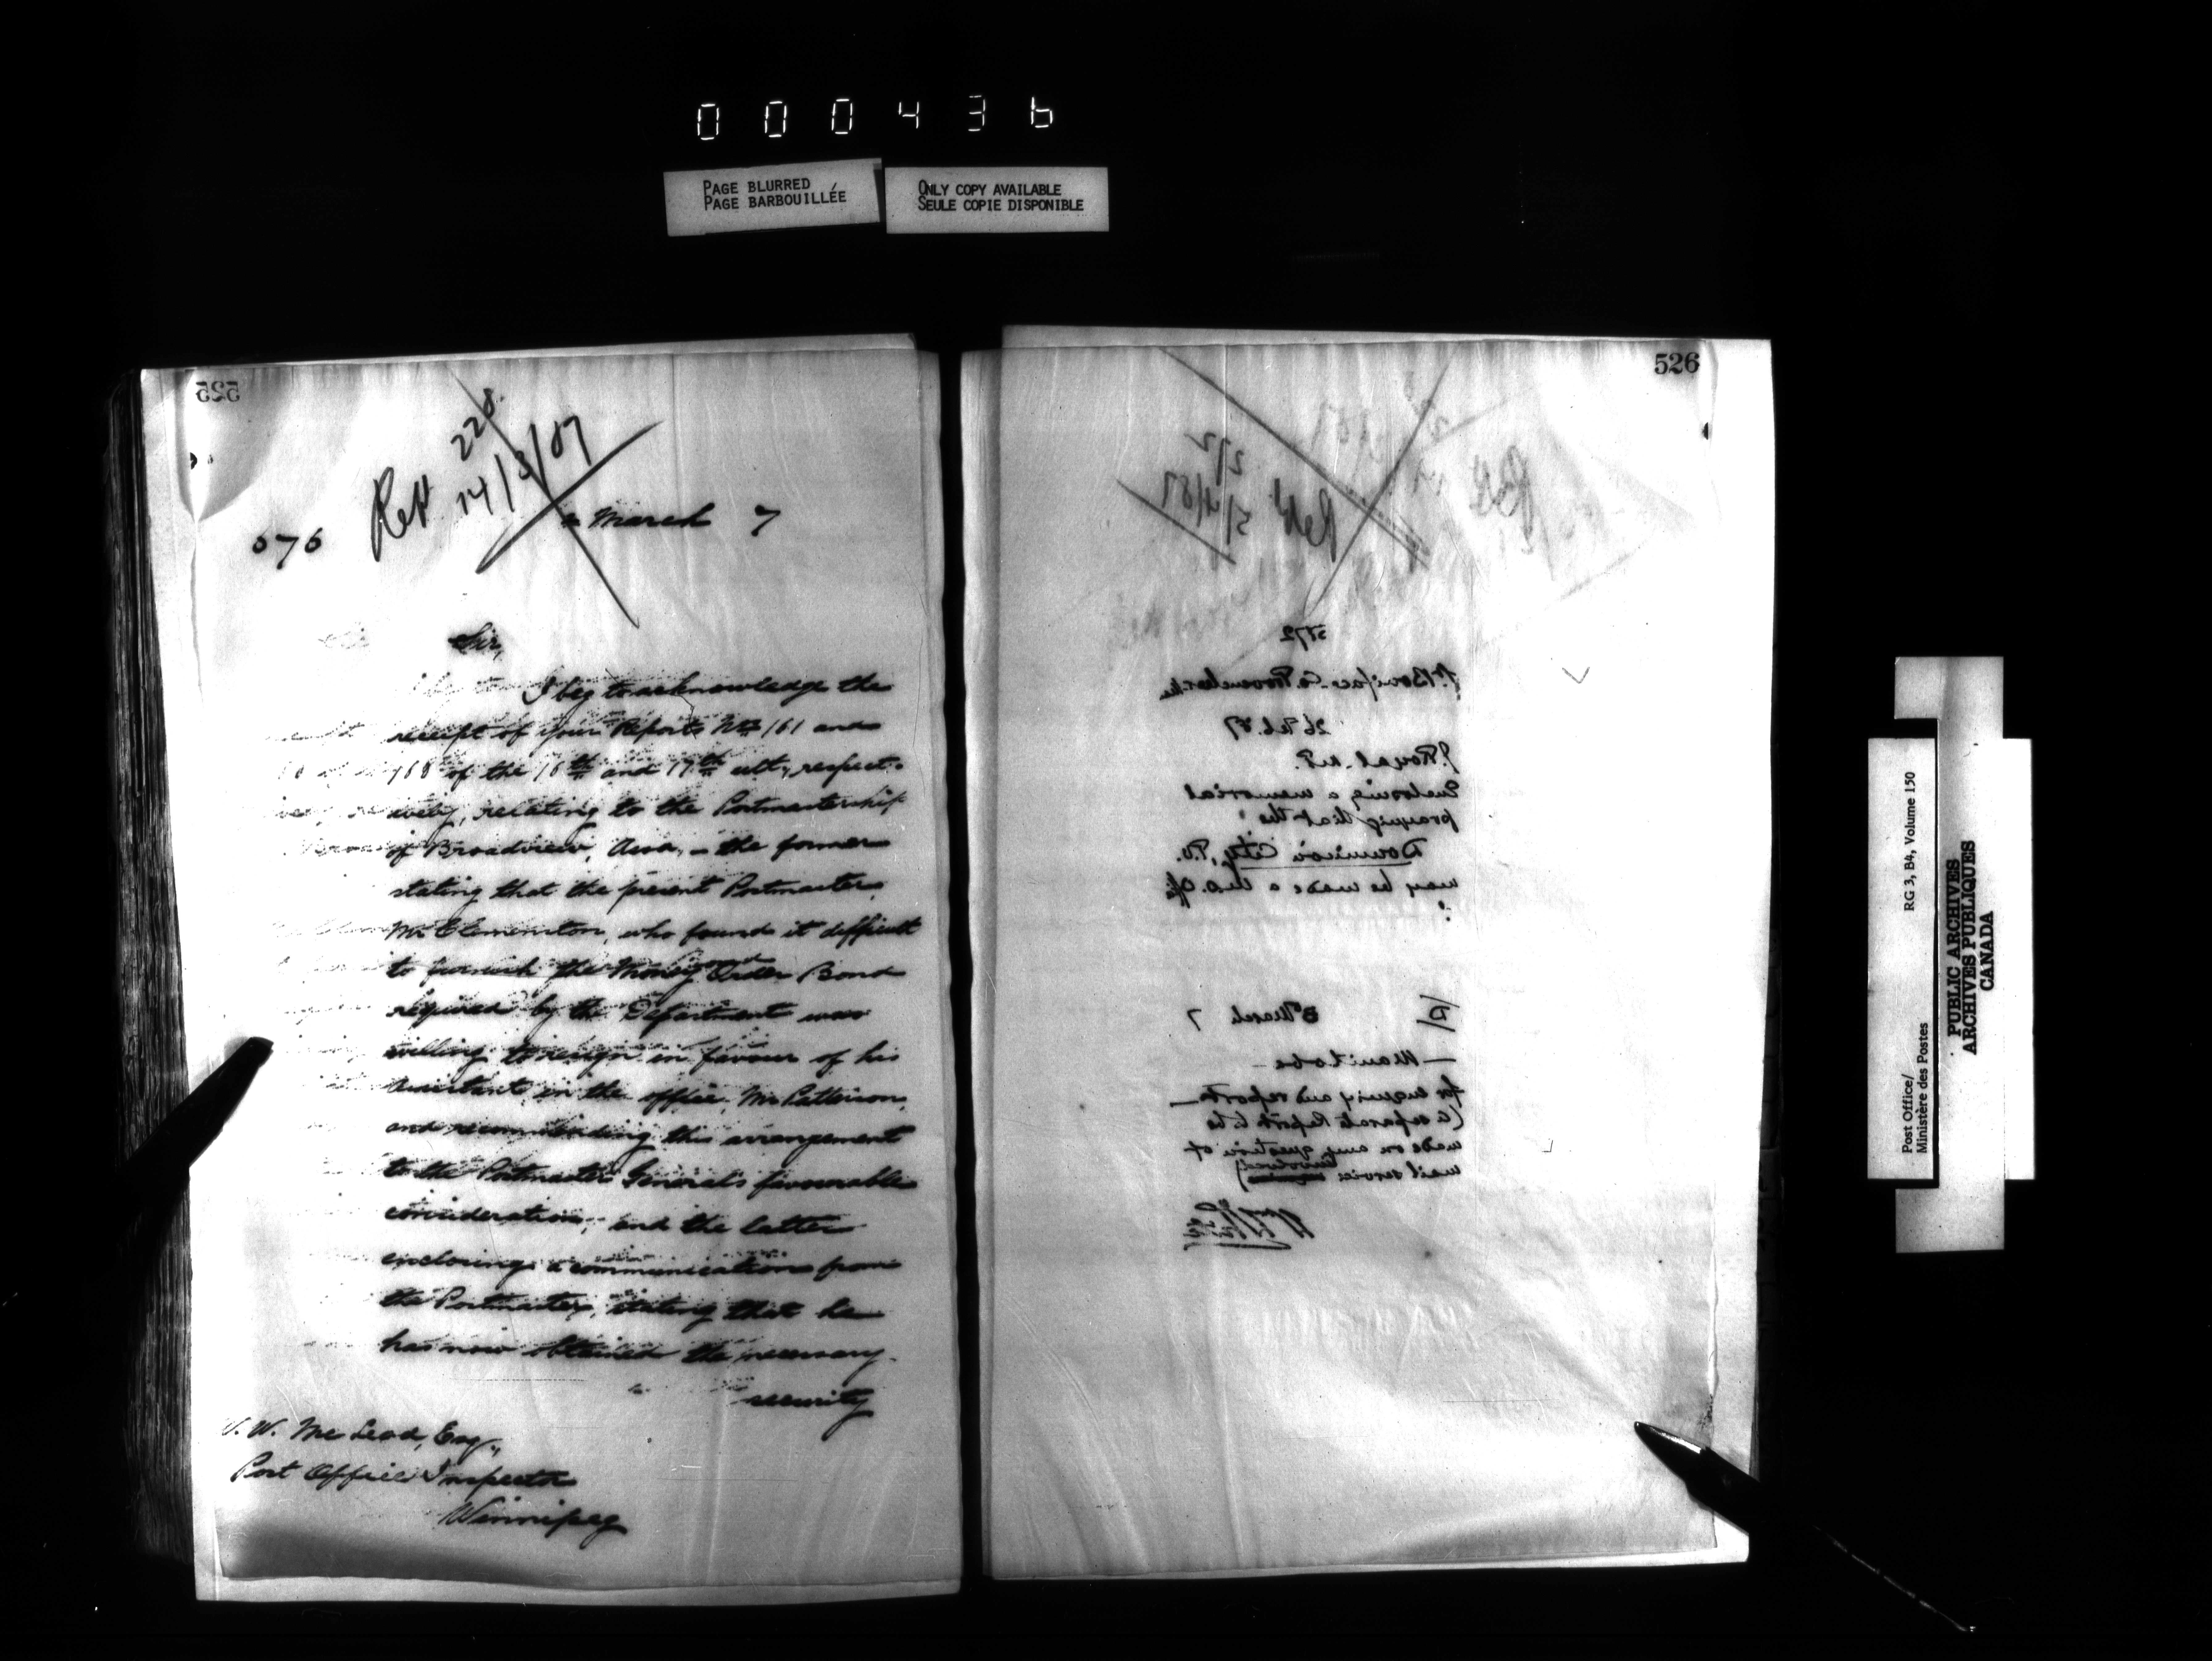 000436
PAGE BLURRED
PAGE BARBOUILLÉE
ONLY COPY AVAILABLE
SEULE COPIE DISPONIBLE
525
Rept 228
14/3/87
576
March 7
Sir,
I beg to acknowledge the
receipt of your Reports Nos 161 and
168 of the 16th and 17th ult, respect-
ively, relating to the Postmastership
of Broadview, Assa, - the former
stating that the present Postmaster,
Mr Clementson, who found it difficult
to furnish the Money Order Bond
required by the Department was
willing to resign in favour of his
assistant in the office, Mr Patterson,
and recommending this arrangement
to the Postmaster General's favourable
consideration; and the latter
enclosing a communication from
the Postmaster, stating that he
has now obtained the necessary
security
W. W. McLeod, Esq.,
Post Office Inspector
Winnipeg
526
Rept 272
5/4/87
5872
St Boniface Co. Provencher
26 Feb. 87
J. Royal M.P.
Enclosing a memorial
praying that the
Dominion City, P.O.
may be made a M.O. Offi
March 7
- Manitoba -
for enquiry and report -
(a separate Report to be
made on any question of
mail service involved)
Post Office/
Ministère des Postes
RG 3, B4, Volume 150
PUBLIC ARCHIVES
ARCHIVES PUBLIQUES
CANADA